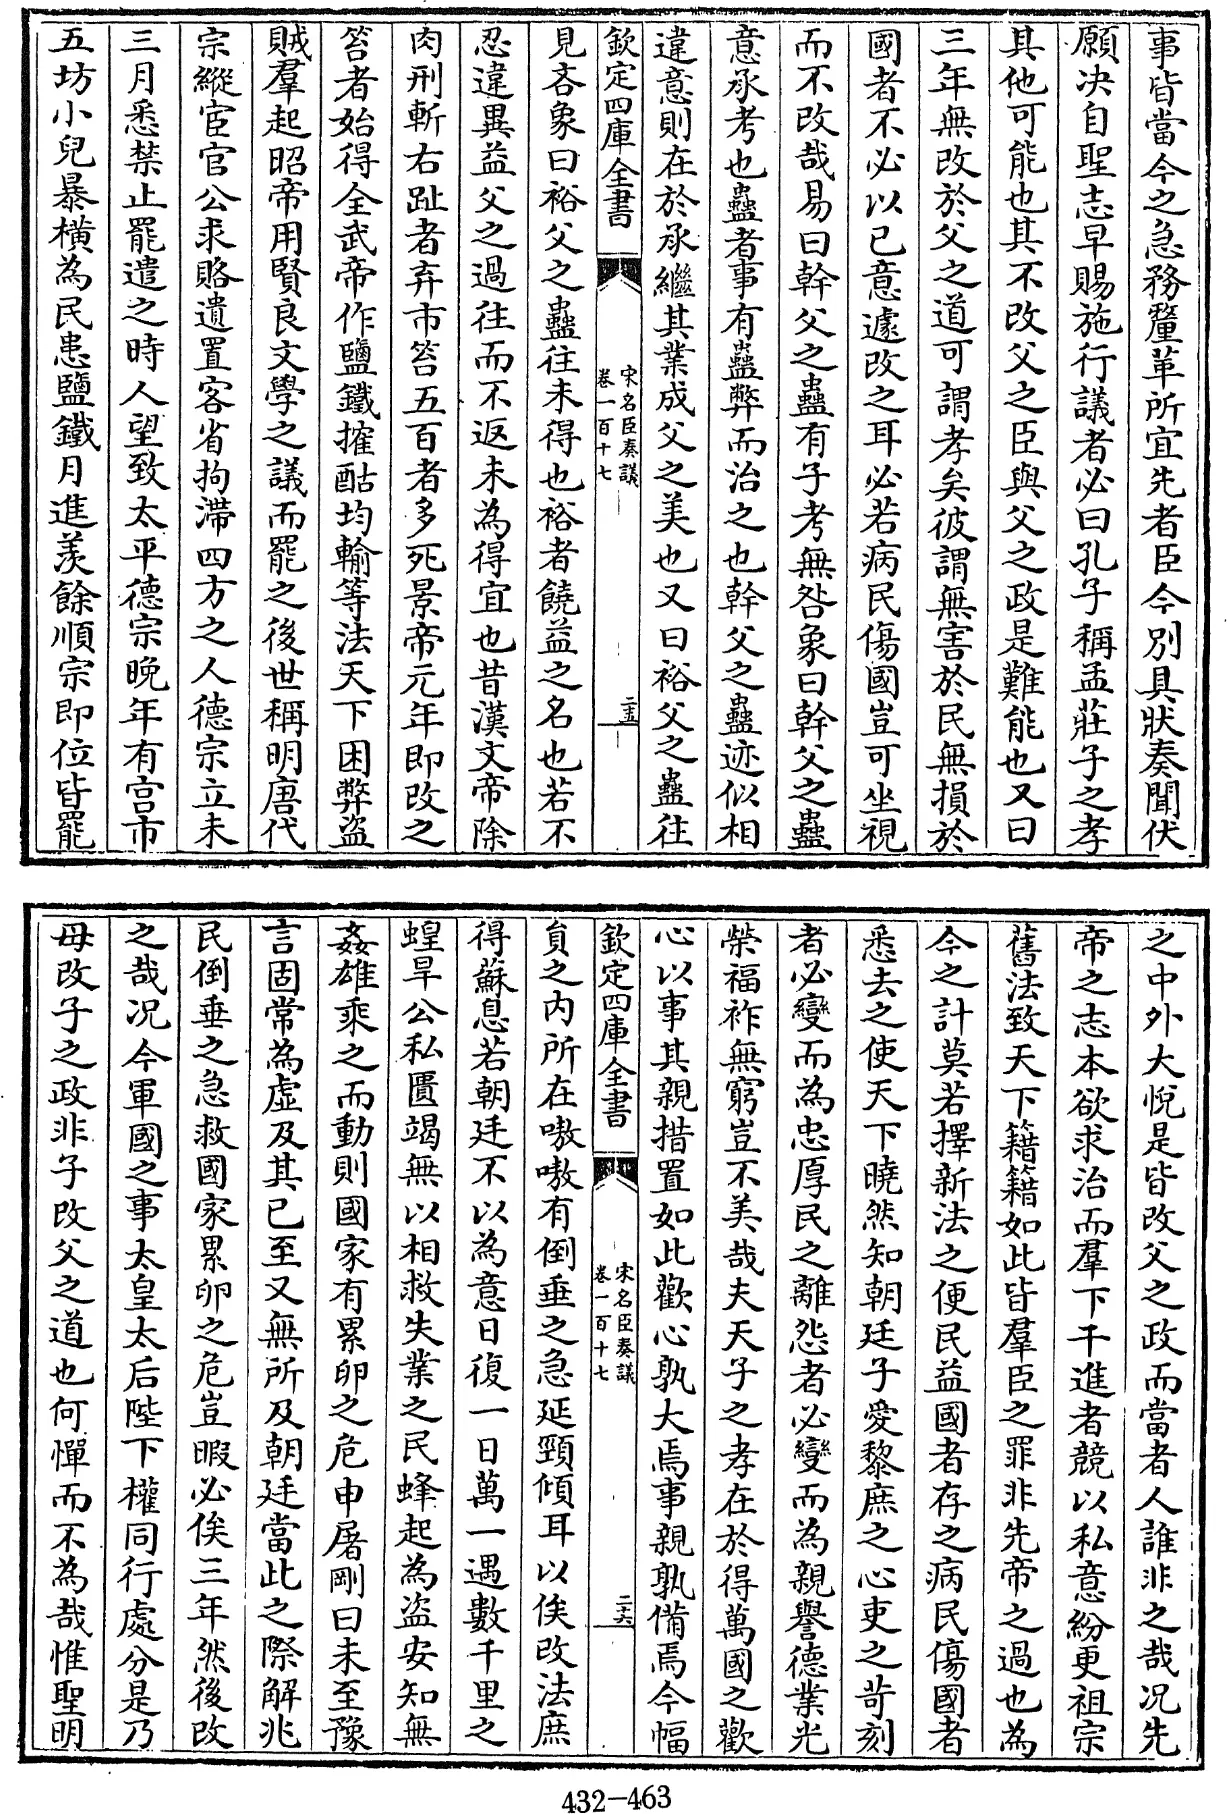 事皆當今之急務釐革所宜先者臣今別具狀奏聞伏
願決自聖志早賜施行議者必曰孔子稱孟莊子之孝
其他可能也其不改父之臣與父之政是難能也又曰
三年無改於父之道可謂孝矣彼謂無害於民無損於
國者不必以已意遽改之耳必若病民傷國豈可坐視
而不改哉易曰幹父之蠱有子考無咎象曰幹父之蠱
意承考也蠱者事有蠱弊而治之也幹父之蠱迹似相
違意則在於承繼其業成父之美也又曰裕父之蠱往
欽定四庫全書
宋名臣奏議
卷一百十七
二十五
見吝象曰裕父之蠱往未得也裕者饒益之名也若不
忍違異益父之過往而不返未為得宜也昔漢文帝除
肉刑斬右趾者弃市笞五百者多死景帝元年即改之
笞者始得全武帝作鹽鐵搉酤均輸等法天下困弊盜
賊羣起昭帝用賢良文學之議而罷之後世稱明唐代
宗縱宦官公求賂遺置客省拘滯四方之人德宗立未
三月悉禁止罷遣之時人望致太平德宗晚年有宫市
五坊小兒暴橫為民患鹽鐵月進羨餘順宗即位皆罷
之中外大悅是皆改父之政而當者人誰非之哉况先
帝之志本欲求治而羣下干進者競以私意紛更祖宗
舊法致天下籍籍如此皆羣臣之罪非先帝之過也為
今之計莫若擇新法之便民益國者存之病民傷國者
悉去之使天下曉然知朝廷子愛黎庶之心吏之苛刻
者必變而為忠厚民之離怨者必變而為親譽德業光
榮福祚無窮豈不美哉夫天子之孝在於得萬國之歡
心以事其親措置如此歡心孰大焉事親孰備焉今幅
欽定四庫全書
宋名臣奏議
卷一百十七
二十六
員之内所在嗷嗷有倒垂之急延頸傾耳以俟改法庶
得蘇息若朝廷不以為意日復一日萬一遇數千里之
蝗旱公私匱竭無以相救失業之民蜂起為盜安知無
姦雄乘之而動則國家有累卵之危申屠剛曰未至豫
言固常為虛及其已至又無所及朝廷當此之際解兆
民倒垂之急救國家累卵之危豈暇必俟三年然後改
之哉况今軍國之事太皇太后陛下權同行處分是乃
母改子之政非子改父之道也何憚而不為哉惟聖明
432—463